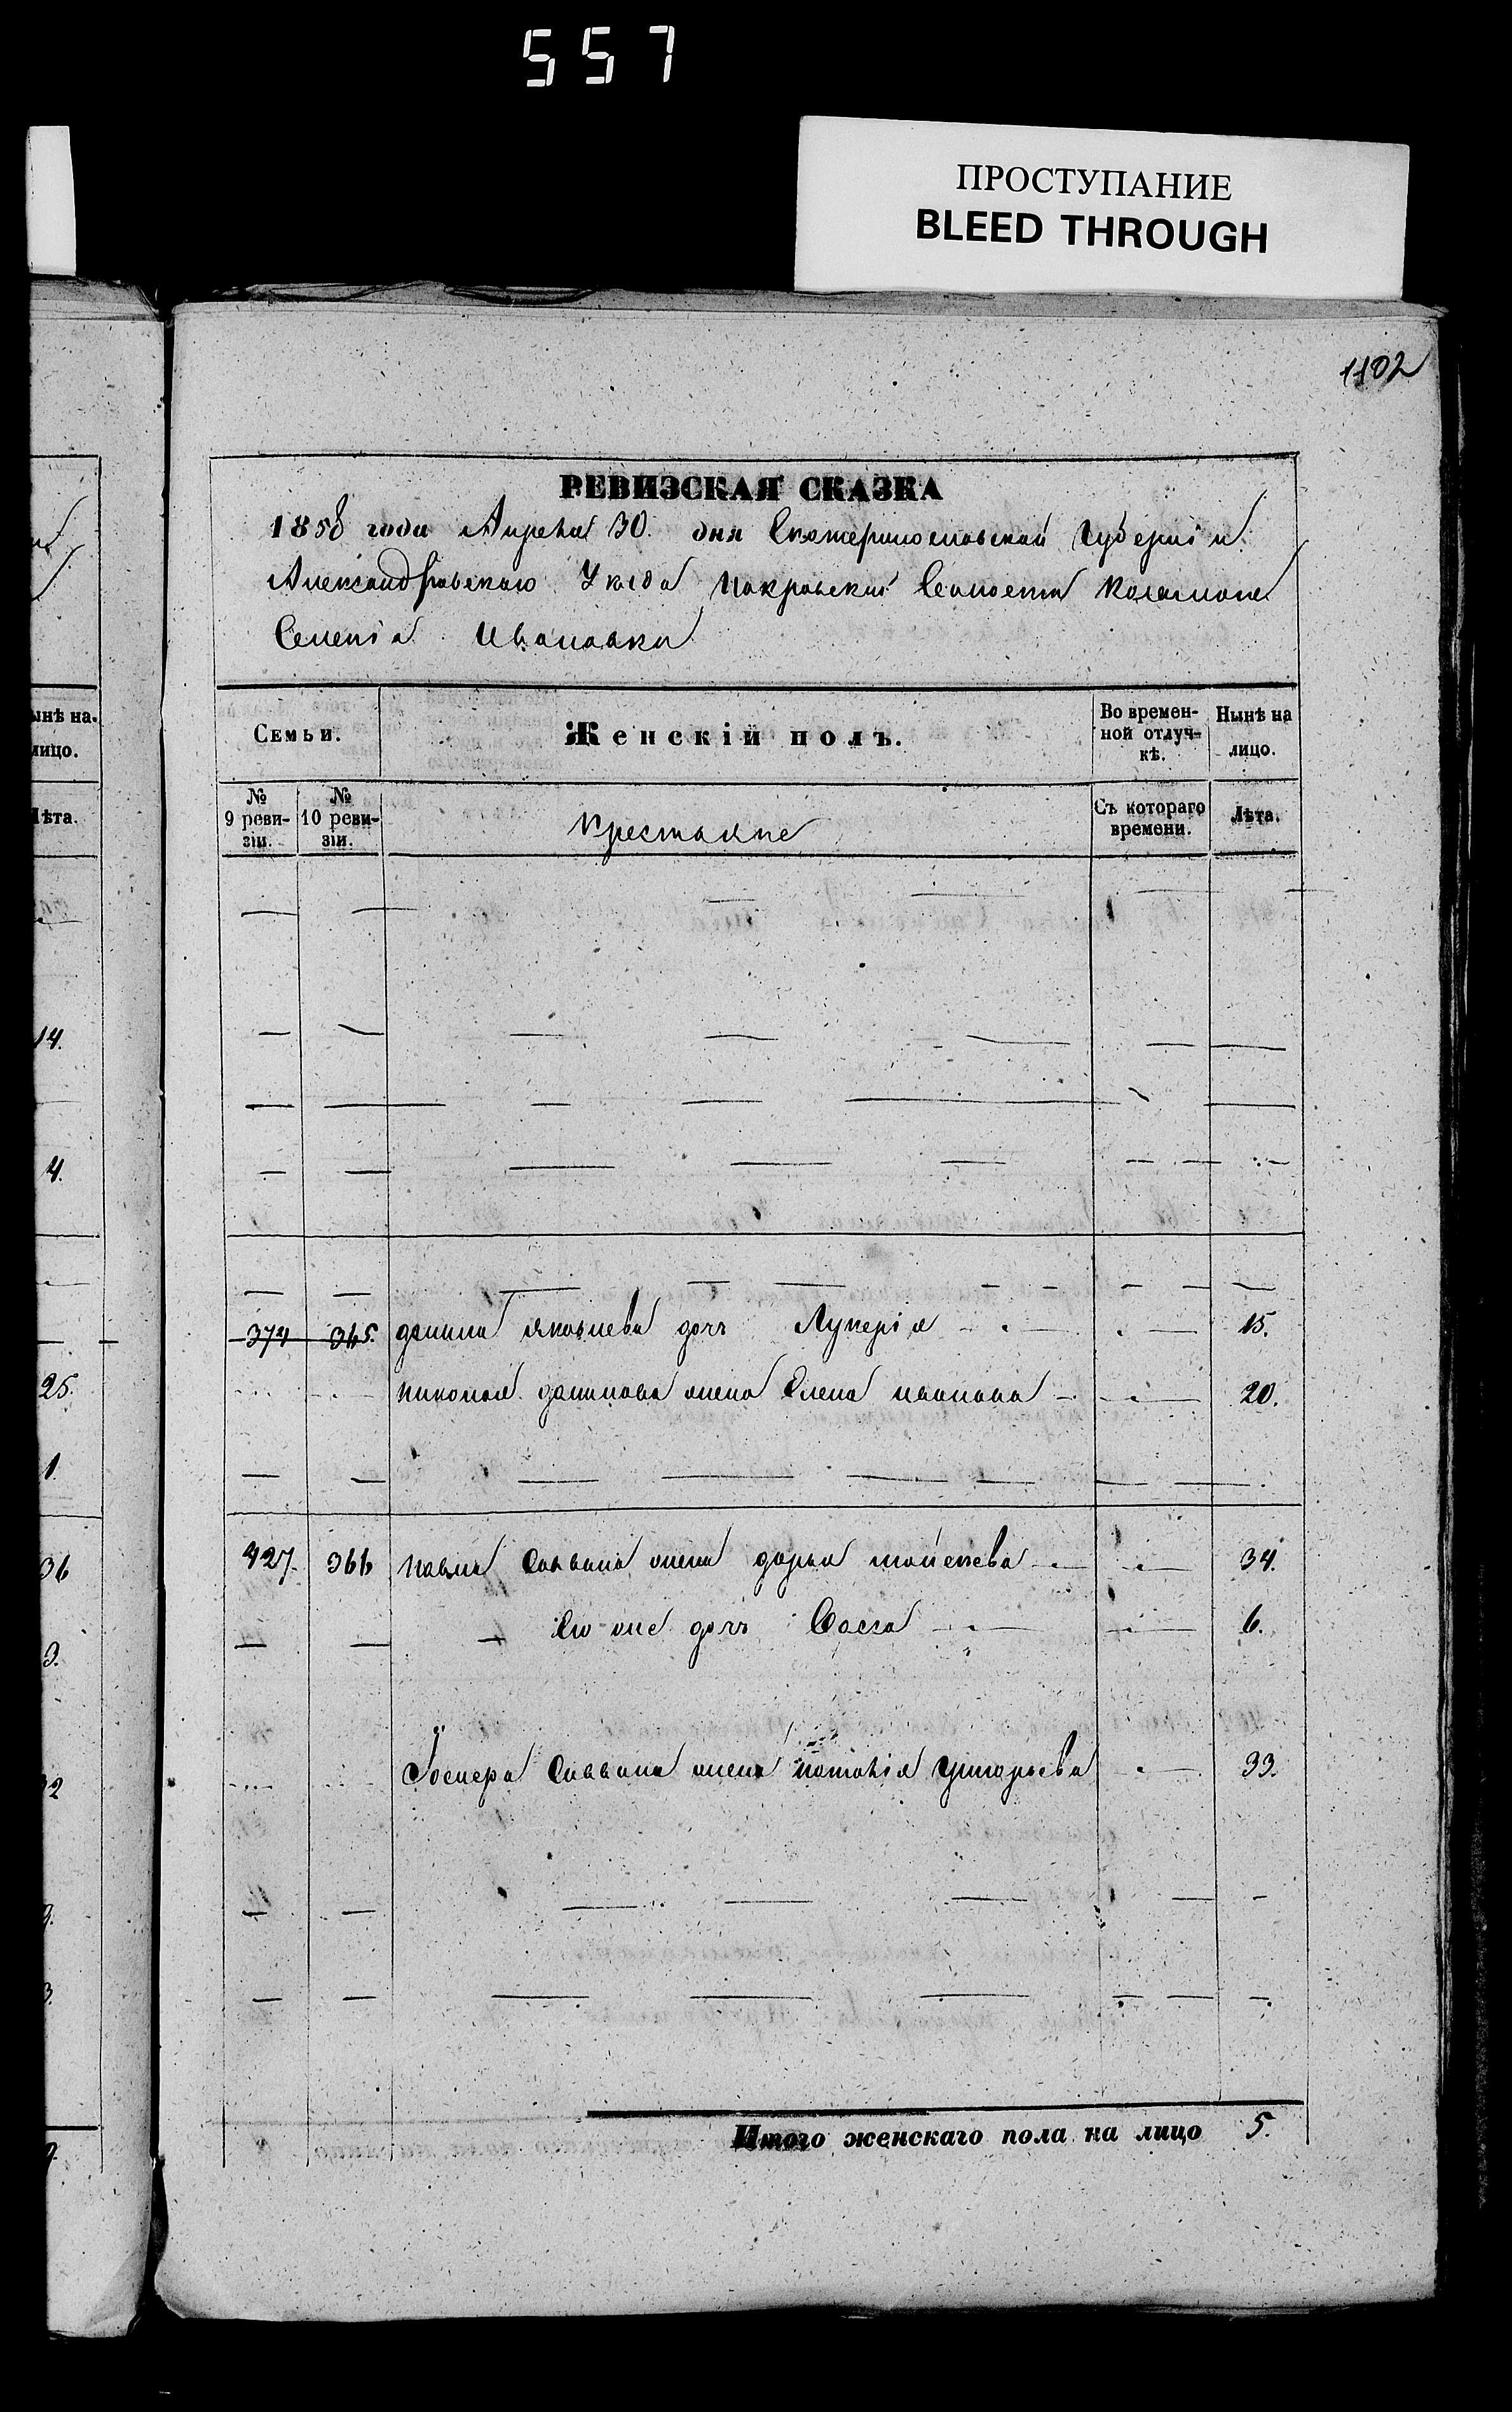 557
ПРОСТУПАНИЕ
BLEED THROUGH
1102
РЕВИЗСКАЯ СКАЗКА
1858 года Апреля 30. дня Екатеринославской Губерніи
Александровскаго Уезда Покровской Волости
Селенія Ивановки
Семьи. Женскій полъ. Во времен-ной отлуч-кѣ. Нынѣ на лицо.
№ 9 реви-зіи. № 10 реви-зіи. Крестьяне Съ котораго времени. Лѣта.
374 365. данила яковлева дочь Лукерія 15.
николая данилова жена Елена иванова 20.
427. 366 павла Саввина жена дарья моисеева 34.
Его же дочь 6.
Саввина жена наталія григорьева 33.
Итого женскаго пола на лицо 5.
ынѣ на-
лицо.
Лѣта.
14.
4.
25.
1.
36
3.
2
3.